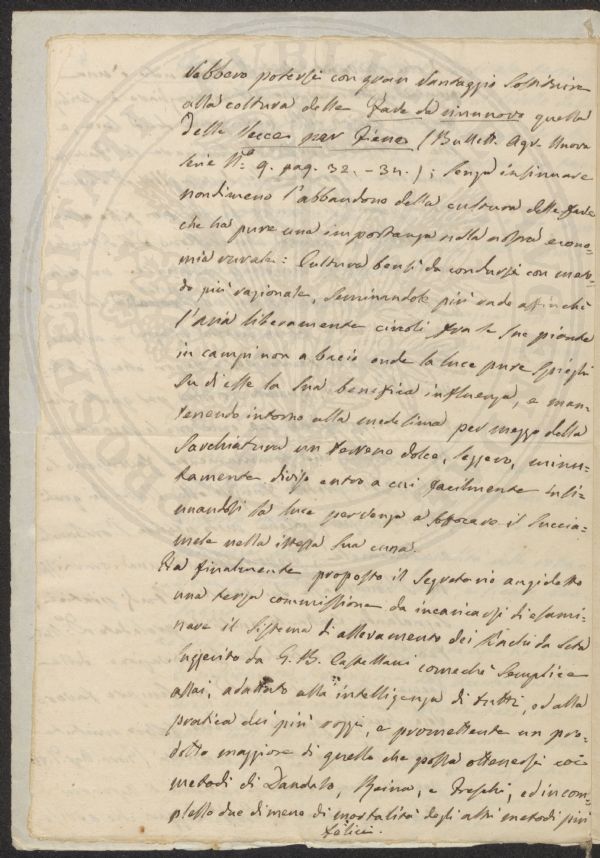 rebbero potersi con gran vantaggio sostituire
alla coltura delle Fave da rinnovo quella
della Vecca per Fieno (Bullett. Agr. Nuova
serie N.o 9. pag. 32. - 34.); senza insinuare
nondimeno l'abbandono della cultura delle fave
che ha pure una importanza nella nostra econo-
mia rurale: Cultura bensì da condursi con meto-
do più razionale, seminandole più rade affinchè
l'aria liberamente circoli fra le sue piante
in campi non a bacio onde la luce pure spieghi
su di esse la sua benefica influenza, e man-
tenendo intorno alla medesima per mezzo della
Sarchiatura un terreno dolce, leggero, minu-
tamente diviso entro a cui facilmente insi-
nuandosi la luce pervenga a soffocare il succia-
mele nella istessa sua cuna.
Ha finalmente proposto il Segretario anzidetto
una terza commissione da incaricarsi di esami-
nare il sistema di allevamento dei Bachi da Seta
suggerito da G. B. Castellani comechè semplice
assai, adattato alla intelligenza di tutti, ed alla
pratica dei più rozzi, e promettente un pro-
dotto maggiore di quello che possa ottenersi coi
metodi di Dandolo, Reina, e Freschi, ed in com-
plesso due di meno di mortalità degli altri metodi più
felici.
PROSPERITA